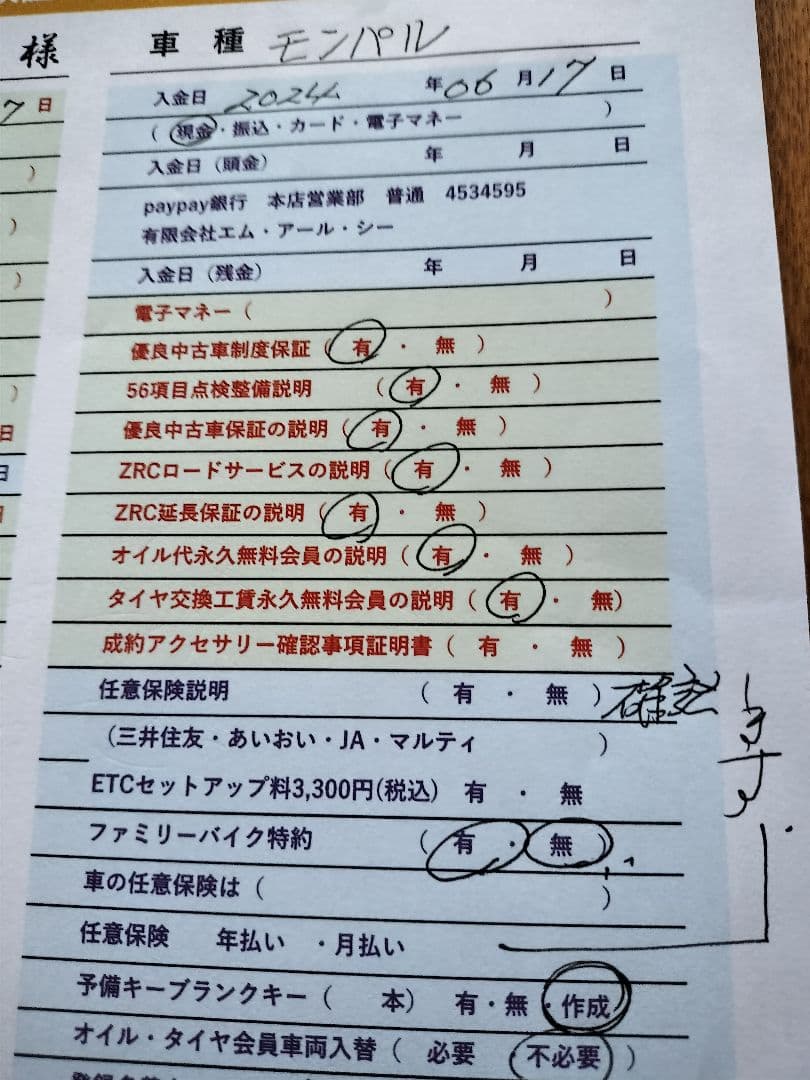 様
車種 モンパル
7日
入金日 2024年06月17日
（現金・振込・カード・電子マネー ）
入金日（頭金） 年 月 日
paypay銀行 本店営業部 普通 4534595
有限会社エム・アール・シー
入金日（残金） 年 月 日
電子マネー（ ）
優良中古車制度保証（ 有 ・ 無 ）
56項目点検整備説明 （ 有 ・ 無 ）
優良中古車保証の説明（ 有 ・ 無 ）
ZRCロードサービスの説明（ 有 ・ 無 ）
ZRC延長保証の説明（ 有 ・ 無 ）
オイル代永久無料会員の説明（ 有 ・ 無 ）
タイヤ交換工賃永久無料会員の説明（ 有 ・ 無）
成約アクセサリー確認事項証明書（ 有 ・ 無 ）
任意保険説明 （ 有 ・ 無 ）
（三井住友・あいおい・JA・マルティ ）
ETCセットアップ料3,300円(税込) 有 ・ 無
ファミリーバイク特約 （ 有 ・ 無 ）
車の任意保険は（ ）
任意保険 年払い ・月払い
予備キーブランクキー（ 本） 有・無・作成
オイル・タイヤ会員車両入替（ 必要 ・不必要 ）